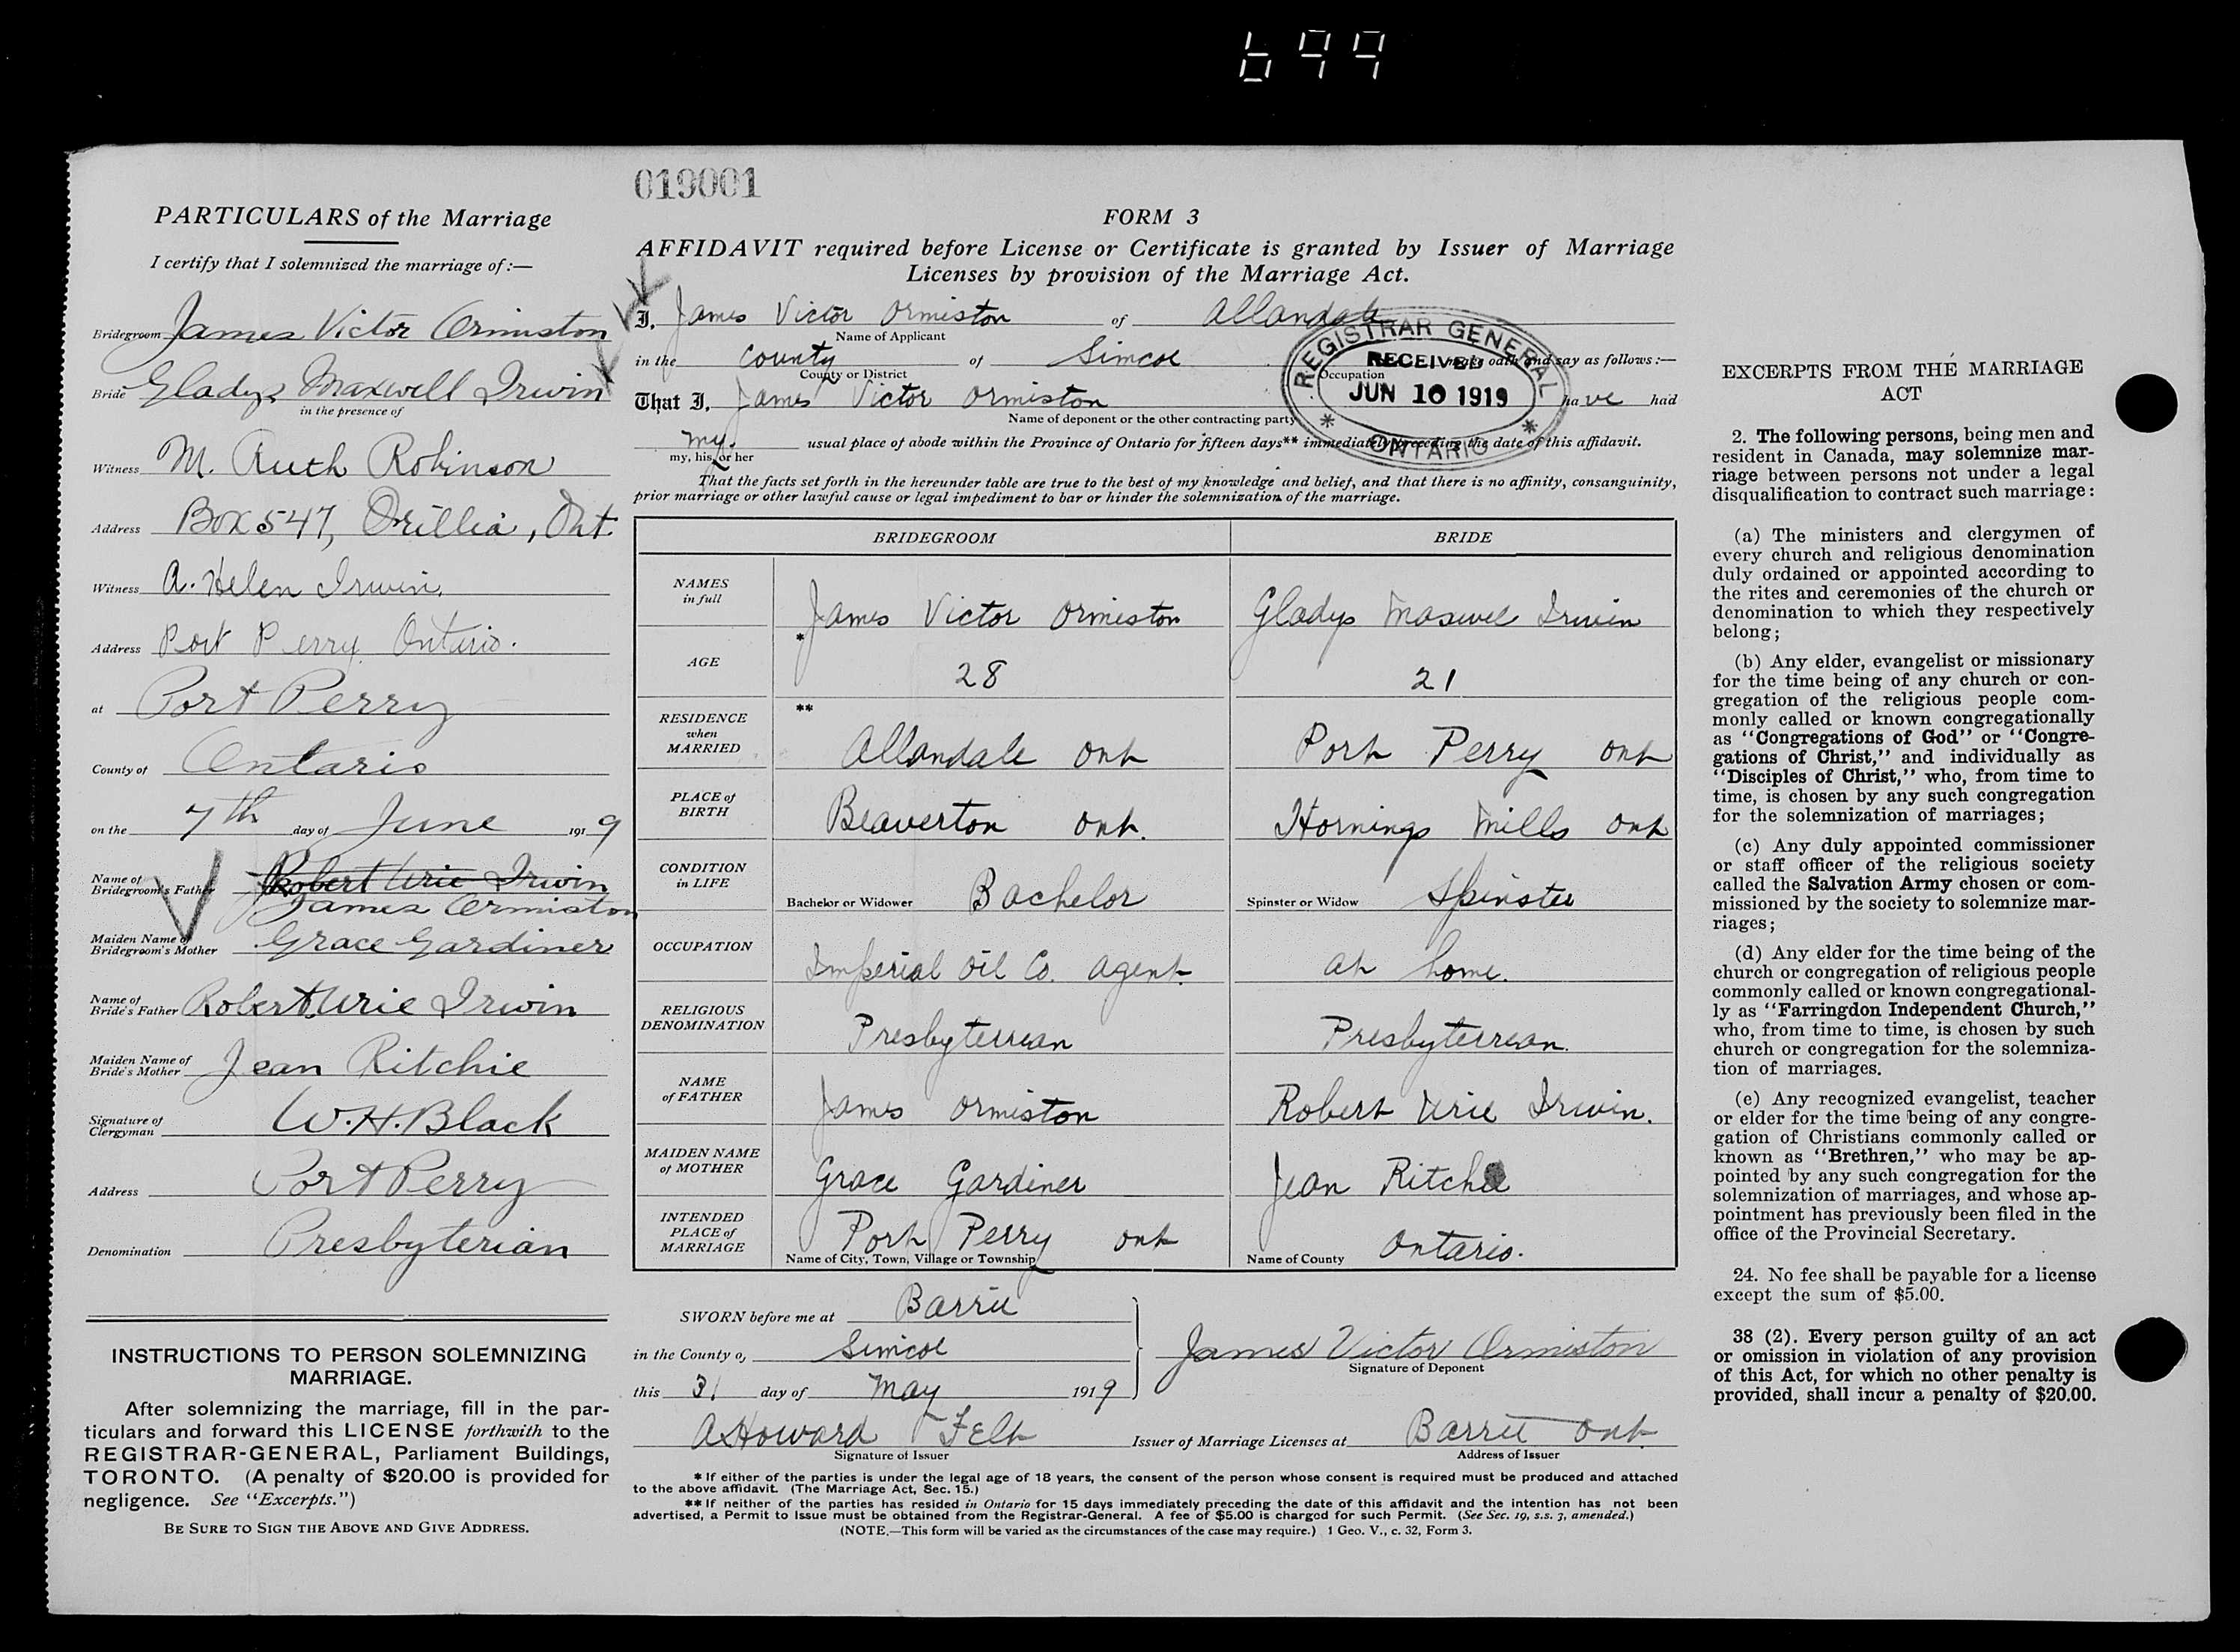 699
019001
PARTICULARS of the Marriage
I certify that I solemnized the marriage of:—
Bridegroom James Victor Ormiston
Bride Gladys Maxwell Irwin
in the presence of
Witness M. Ruth Robinson
Address Box 547, Orillia, Ont.
Witness A. Helen Irwin.
Address Port Perry Ontario.
at Port Perry
County of Ontario
on the 7th day of June 1919
Name of Bridegroom's Father Robert Urie Irwin
James Ormiston
Maiden Name of Bridegroom's Mother Grace Gardiner
Name of Bride's Father Robert Urie Irwin
Maiden Name of Bride's Mother Jean Ritchie
Signature of Clergyman W.H. Black
Address Port Perry
Denomination Presbyterian
INSTRUCTIONS TO PERSON SOLEMNIZING
MARRIAGE.
After solemnizing the marriage, fill in the par-
ticulars and forward this LICENSE forthwith to the
REGISTRAR-GENERAL, Parliament Buildings,
TORONTO. (A penalty of $20.00 is provided for
negligence. See "Excerpts.")
BE SURE TO SIGN THE ABOVE AND GIVE ADDRESS.
FORM 3
AFFIDAVIT required before License or Certificate is granted by Issuer of Marriage
Licenses by provision of the Marriage Act.
I, James Victor Ormiston of Allandale
Name of Applicant
in the County of Simcoe make oath and say as follows:—
County or District Occupation
That I, James Victor Ormiston have had
Name of deponent or the other contracting party
my usual place of abode within the Province of Ontario for fifteen days** immediately preceding the date of this affidavit.
my, his, or her
REGISTRAR GENERAL
RECEIVED
JUN 10 1919
* ONTARIO *
That the facts set forth in the hereunder table are true to the best of my knowledge and belief, and that there is no affinity, consanguinity,
prior marriage or other lawful cause or legal impediment to bar or hinder the solemnization of the marriage.
BRIDEGROOM BRIDE
NAMES in full James Victor Ormiston Gladys Maxwel Irwin
AGE * 28 21
RESIDENCE when MARRIED ** Allandale Ont Port Perry Ont
PLACE of BIRTH Beaverton Ont. Hornings Mills Ont
CONDITION in LIFE Bachelor or Widower Bachelor Spinster or Widow Spinster
OCCUPATION Imperial Oil Co. Agent. at home.
RELIGIOUS DENOMINATION Presbyterrean Presbyterrean.
NAME of FATHER James Ormiston Robert Urie Irwin.
MAIDEN NAME of MOTHER Grace Gardiner Jean Ritchie
INTENDED PLACE of MARRIAGE Port Perry Ont Ontario.
Name of City, Town, Village or Township Name of County
SWORN before me at Barrie
in the County of Simcoe
this 31 day of May 1919
James Victor Ormiston
Signature of Deponent
A Howard Felt Issuer of Marriage Licenses at Barrie Ont.
Signature of Issuer Address of Issuer
* If either of the parties is under the legal age of 18 years, the consent of the person whose consent is required must be produced and attached
to the above affidavit. (The Marriage Act, Sec. 15.)
** If neither of the parties has resided in Ontario for 15 days immediately preceding the date of this affidavit and the intention has not been
advertised, a Permit to Issue must be obtained from the Registrar-General. A fee of $5.00 is charged for such Permit. (See Sec. 19, s.s. 3, amended.)
(NOTE.—This form will be varied as the circumstances of the case may require.) 1 Geo. V., c. 32, Form 3.
EXCERPTS FROM THE MARRIAGE
ACT
2. The following persons, being men and
resident in Canada, may solemnize mar-
riage between persons not under a legal
disqualification to contract such marriage:
(a) The ministers and clergymen of
every church and religious denomination
duly ordained or appointed according to
the rites and ceremonies of the church or
denomination to which they respectively
belong;
(b) Any elder, evangelist or missionary
for the time being of any church or con-
gregation of the religious people com-
monly called or known congregationally
as "Congregations of God" or "Congre-
gations of Christ," and individually as
"Disciples of Christ," who, from time to
time, is chosen by any such congregation
for the solemnization of marriages;
(c) Any duly appointed commissioner
or staff officer of the religious society
called the Salvation Army chosen or com-
missioned by the society to solemnize mar-
riages;
(d) Any elder for the time being of the
church or congregation of religious people
commonly called or known congregational-
ly as "Farringdon Independent Church,"
who, from time to time, is chosen by such
church or congregation for the solemniza-
tion of marriages.
(e) Any recognized evangelist, teacher
or elder for the time being of any congre-
gation of Christians commonly called or
known as "Brethren," who may be ap-
pointed by any such congregation for the
solemnization of marriages, and whose ap-
pointment has previously been filed in the
office of the Provincial Secretary.
24. No fee shall be payable for a license
except the sum of $5.00.
38 (2). Every person guilty of an act
or omission in violation of any provision
of this Act, for which no other penalty is
provided, shall incur a penalty of $20.00.